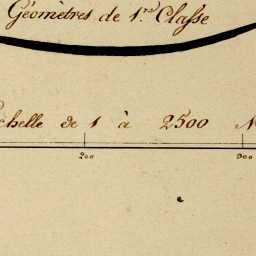 Géomètres de 1.re Classe
chelle de 1 à 2500
200 300